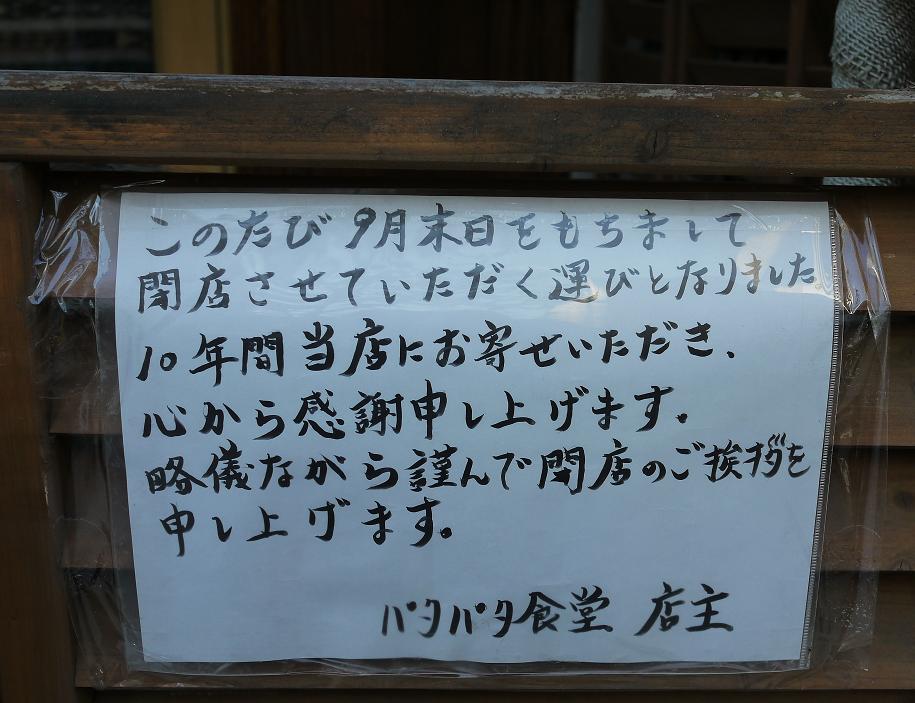 このたび 9月末日をもちまして
閉店させていただく運びとなりました。
10年間当店にお寄せいただき、
心から感謝申し上げます。
略儀ながら謹んで閉店のご挨拶を
申し上げます。
パタパタ食堂 店主